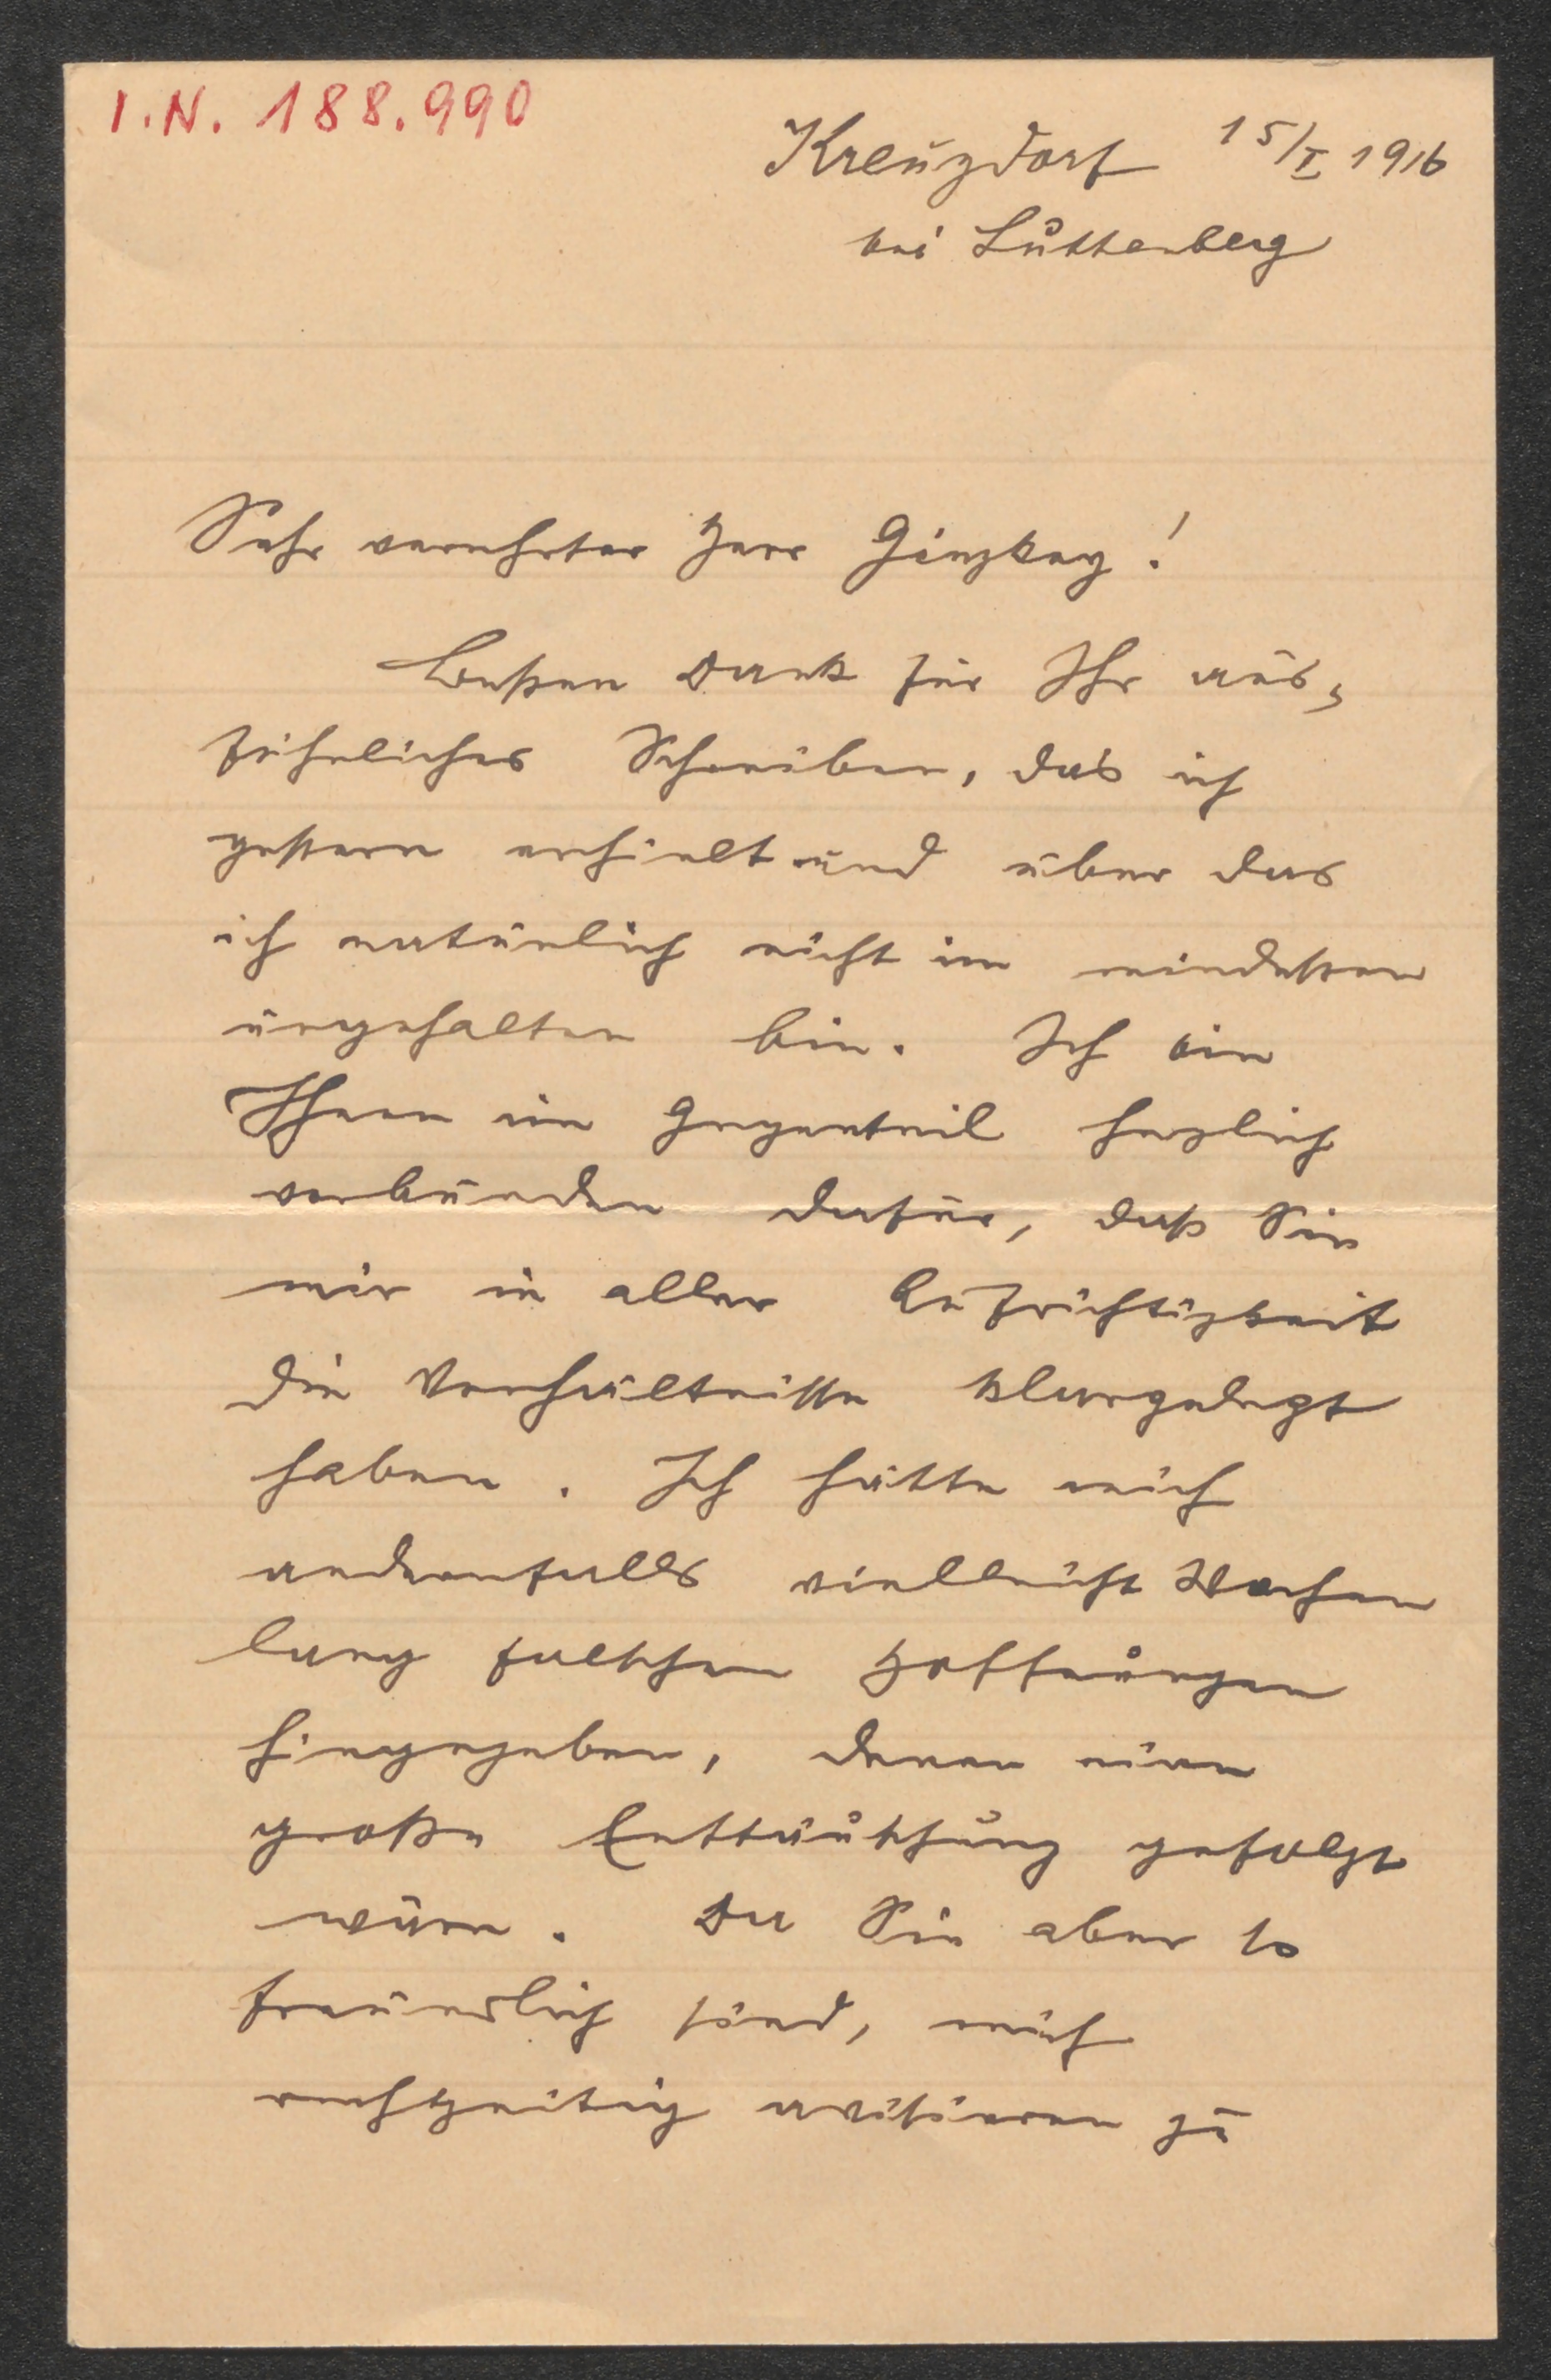 I.N. 188.990
Kreuzdorf 15/I 1916
bei Luttenberg
Sehr verehrter Herr Ginzkey!
Besten Dank für Ihr aus-
führliches Schreiben, das ich
gestern erhielt und über das
ich natürlich nicht im mindesten
ungehalten bin. Ich bin
Ihnen im Gegenteil herzlich
verbunden dafür, daß Sie
mir in aller Aufrichtigkeit
die Verhältnisse klargelegt
haben. Ich hätte mich
andernfalls vielleicht Wochen
lang falschen Hoffnungen
hingegeben, denen eine
große Enttäuschung gefolgt
wäre. Da Sie aber so
freundlich sind, mich
rechtzeitig avisieren zu